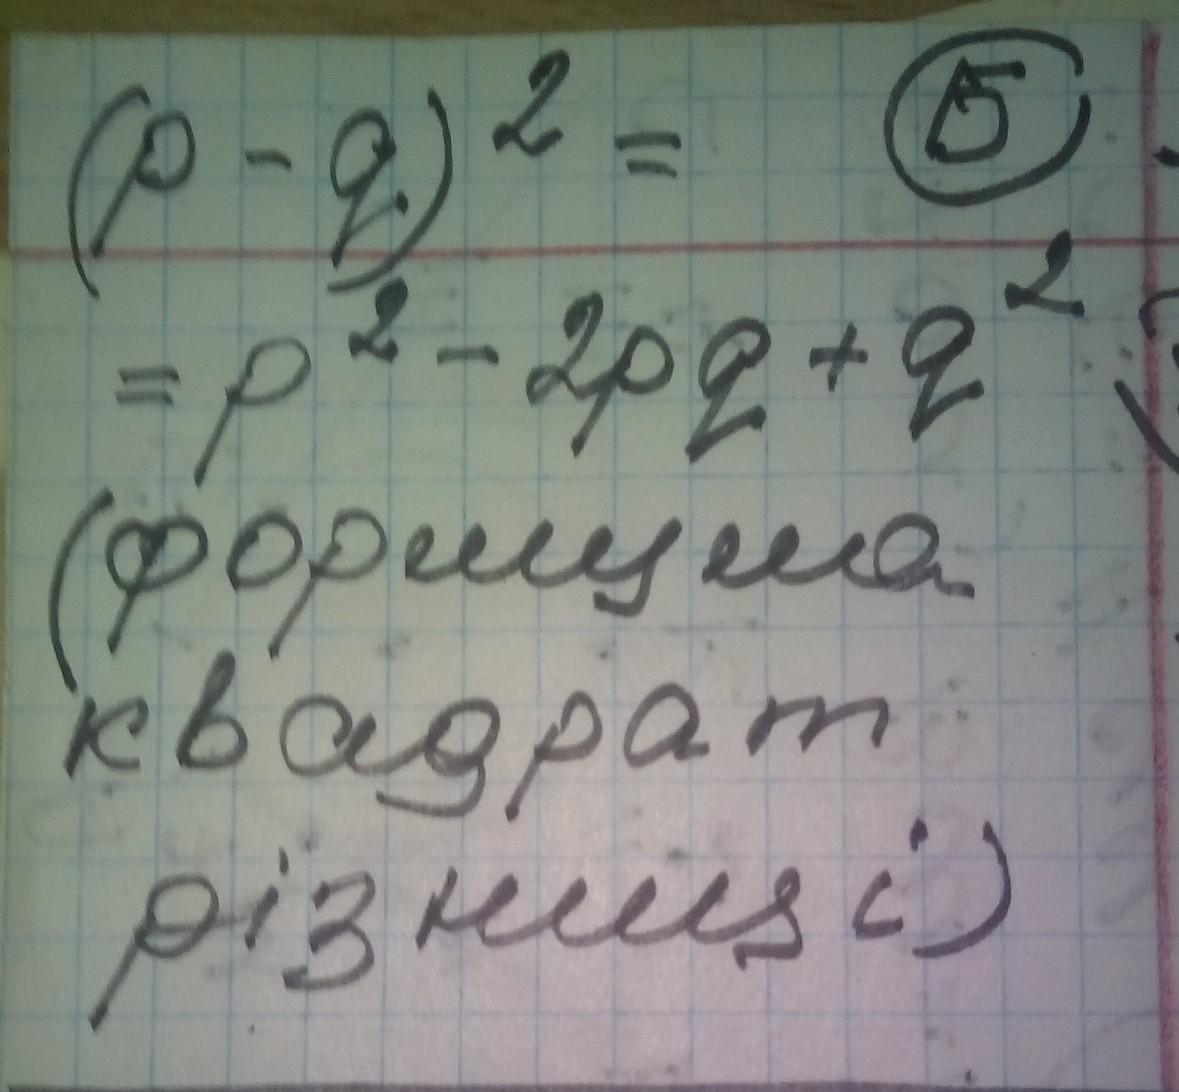 (p - q)² = 5
= p² - 2pq + q²
(формула
квадрат
різниці)